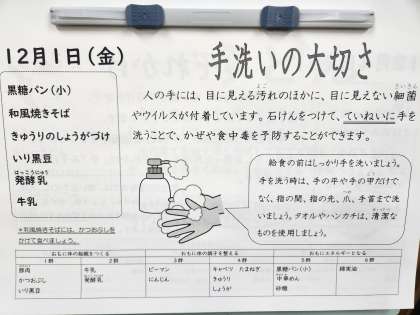 12月1日(金)
手洗いの大切さ
黒糖パン(小)
和風焼きそば
きゅうりのしょうがづけ
いり黒豆
はっこうにゅう
発酵乳
牛乳
*和風焼きそばには、かつおぶしを
かけて食べましょう。
よご
さいきん
人の手には、目に見える汚れのほかに、目に見えない細菌
やウイルスが付着しています。石けんをつけて、ていねいに手
を洗うことで、かぜや食中毒を予防することができます。
給食の前はしっかり手を洗いましょう。
手を洗う時は、手の平や手の甲だけで
なく、指の間、指の先、爪、手首まで洗
いましょう。タオルやハンカチは、清潔な
ものを使用しましょう。
おもに体の組織をつくる おもに体の調子を整える おもにエネルギーとなる
1群 2群 3群 4群 5群 6群
豚肉 牛乳 ピーマン キャベツ たまねぎ 黒糖パン(小) 綿実油
かつおぶし 発酵乳 にんじん きゅうり 中華めん
いり黒豆 しょうが 砂糖